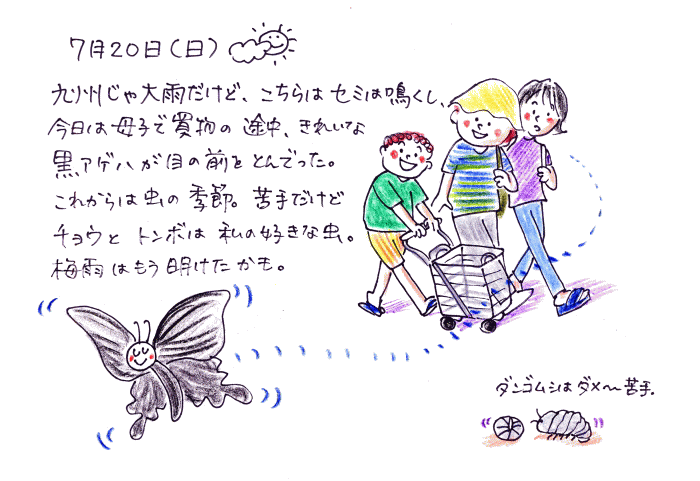 7月20日(日)
九州じゃ大雨だけど、こちらはセミは鳴くし、
今日は母子で買物の途中、きれいな
黒アゲハが目の前をとんでった。
これからは虫の季節。苦手だけど
チョウとトンボは私の好きな虫。
梅雨はもう明けたかも。
ダンゴムシはダメ〜苦手。